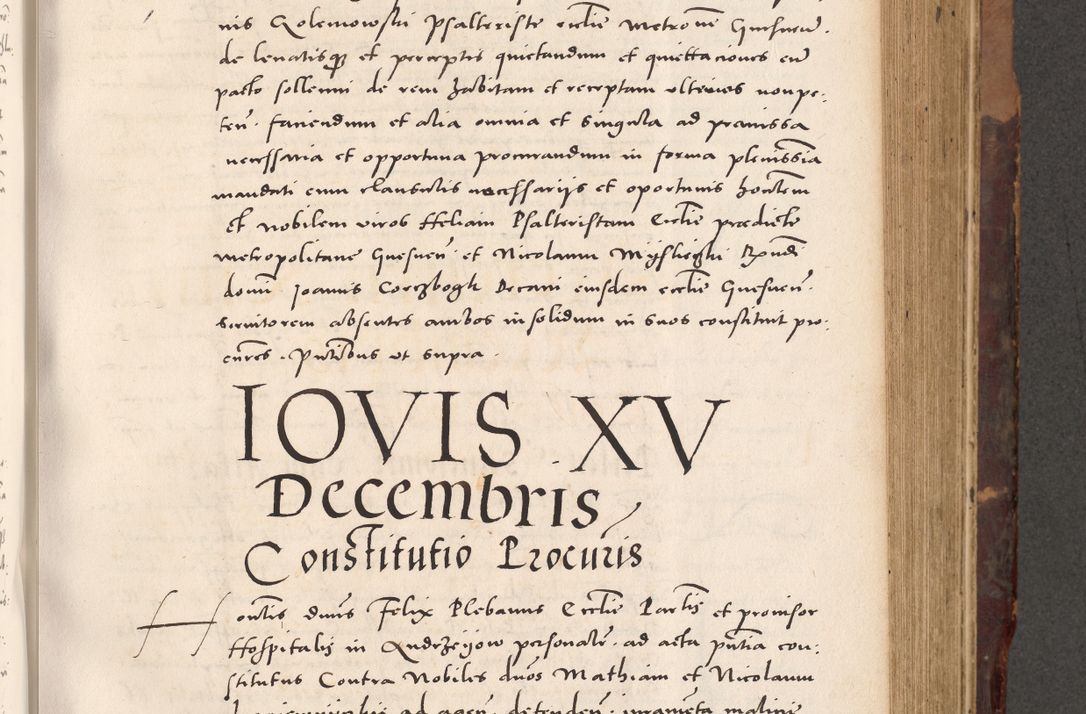 nis Golemowski Psalteriste ecclie metroni Gnesnen̄.
de levatisq̨ et perceptis quietandum et quiettaciones cū
pacto sollemni de rem habitam et receptam ulterius non pe:
ten. faciendum et alia omnia et singula ad premissa
necessaria et opportuna procurandum in forma plenissīa
mandati cum clausulis necessarijs et oportunis honētem
et nobilem viros Heliam Psalteristam Ecclie predicte
metropolitane Gnesnen̄. et Nicolaum Myslieczki Rx̄ndi
domi Joannis Corczbogk Decani eiusdem ecclie Gnesnen̄.
servitorem absentes ambos in solidum in suos constituit pro:
cūres. Pn̄tibus ut supra.
IOVIS XV
Decembris
Constitutio Procuris
Honētis dnūs Felix Plebanus Ecclie Parlis et provisor
Hospitalis in Andrzeyow personalr̄. ad acta pn̄tia con:
stitutus Contra Nobiles dnōs Mathiam et Nicolaum
ad agen̄. defenden̄. iuramēta malicie